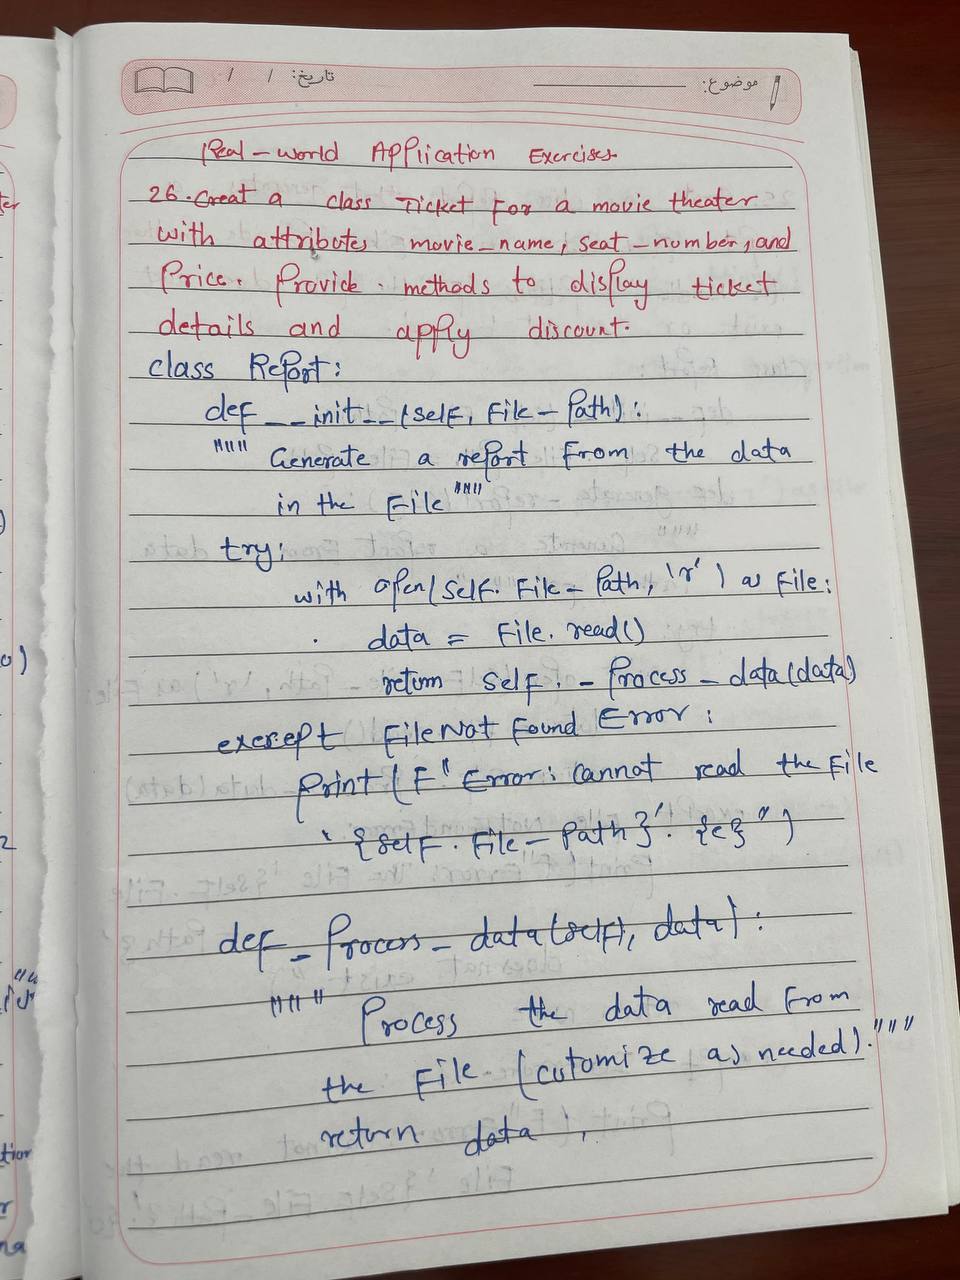 موضوع:
تاریخ: / /
Real-world Application Exercises
26. Creat a class Ticket For a movie theater
with attributes movie_name, seat_number, and
Price. Provide. methods to display ticket
details and apply discount.
class Report:
def __init__(self, File_Path):
""" Generate a report From the data
in the File """
try:
with open(self.File_Path, 'r') as File:
data = File.read()
return self._Process_data(data)
exersept FileNotFoundError:
Print(F"Error: cannot read the File
'{self.File_Path}'. {e}")
def _Process_data(self), data):
""" Process the data read From
the File (cutomize as needed)."""
return data.